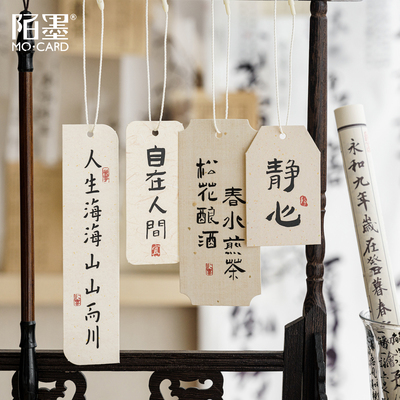 陌墨®
MO·CARD
人生海海山山而川
自在人間
春水煎茶
松花酿酒
静心
永和九年歲在
暮春